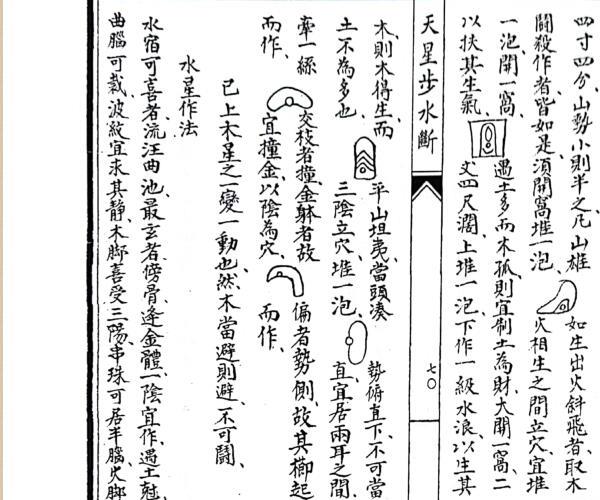 四寸四分、山勢小則半之、凡山雄
鬪殺作者皆如是、須開窩堆一泡、 如生出火斜飛者、取木
火相生之間立穴、宜堆
一泡、開一窩、 遇土多而木孤、則宜制土為財、大開一窩、二
以扶其生氣、 丈四尺濶、上堆一泡、下作一級水浪、以生其
天星步水斷 七〇
木、則木得生、而 平山坦夷、當頭湊 勢俯直下、不可當
土不為多也、 三陰立穴、堆一泡、 直、宜居兩耳之間、
牽一絲 交枝者撞金躰者故 偏者勢側、故其櫛起
而作、 宜撞金、以陰為穴、 而作、
已上木星之一變一動也、然木當避則避、不可鬪、
水星作法
水宿可喜者、流汪曲池、最玄者、傍骨逢金體一陰宜作、遇土尅
曲腦可裁、波紋宜求其靜、木脚喜受三陽、串珠可居半腦、火脚